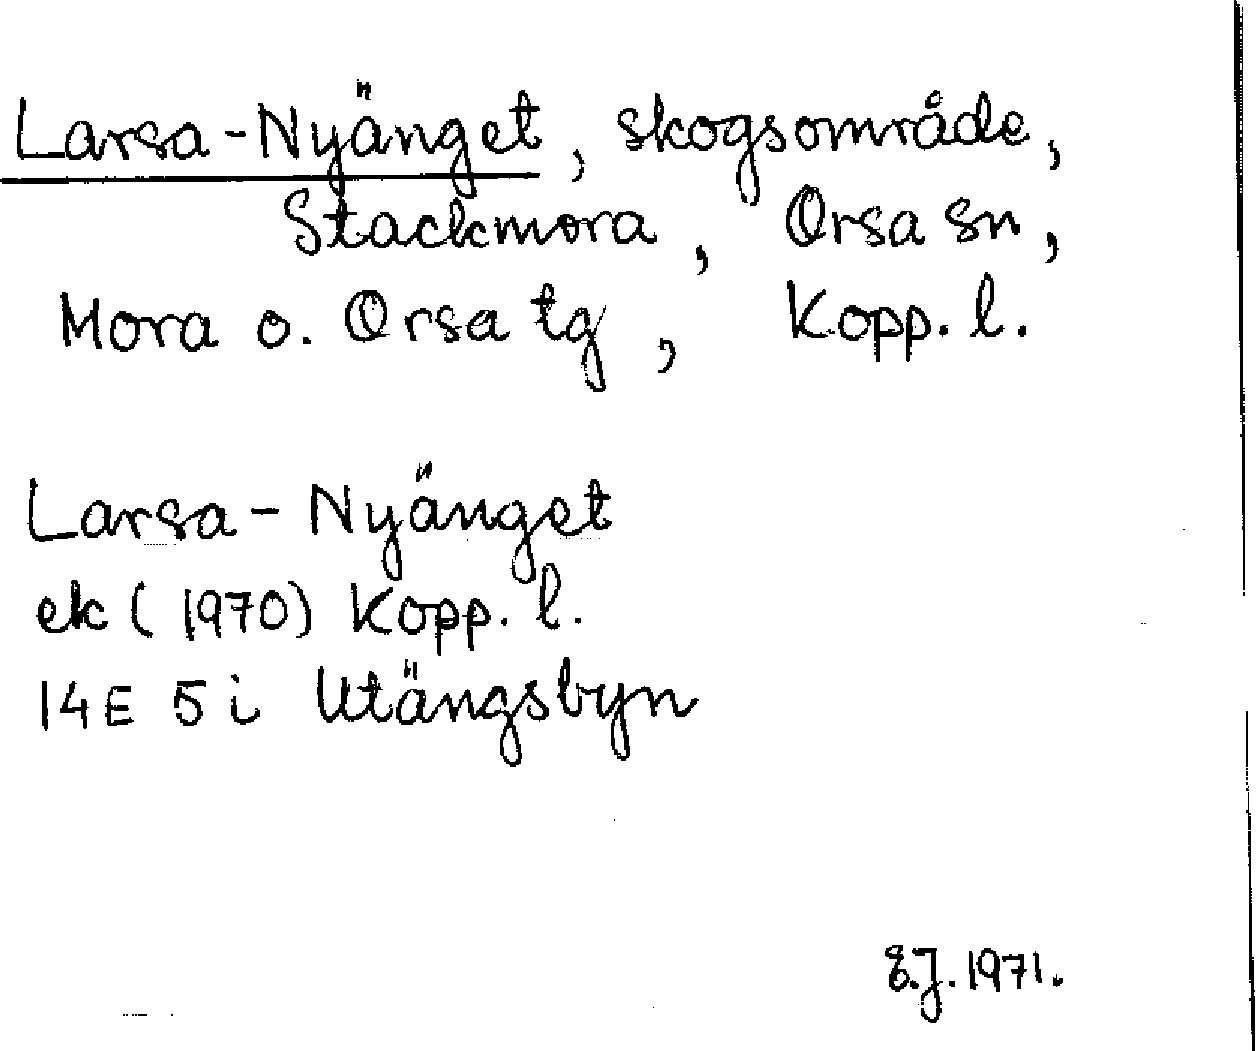 Larsa-Nyänget, skogsområde,
Stackmora, Orsa sn,
Mora o. Orsa tg, Kopp. l.
Larsa-Nyänget
ek (1970) Kopp. l.
14E 5i Utängsbyn
E.J. 1971.